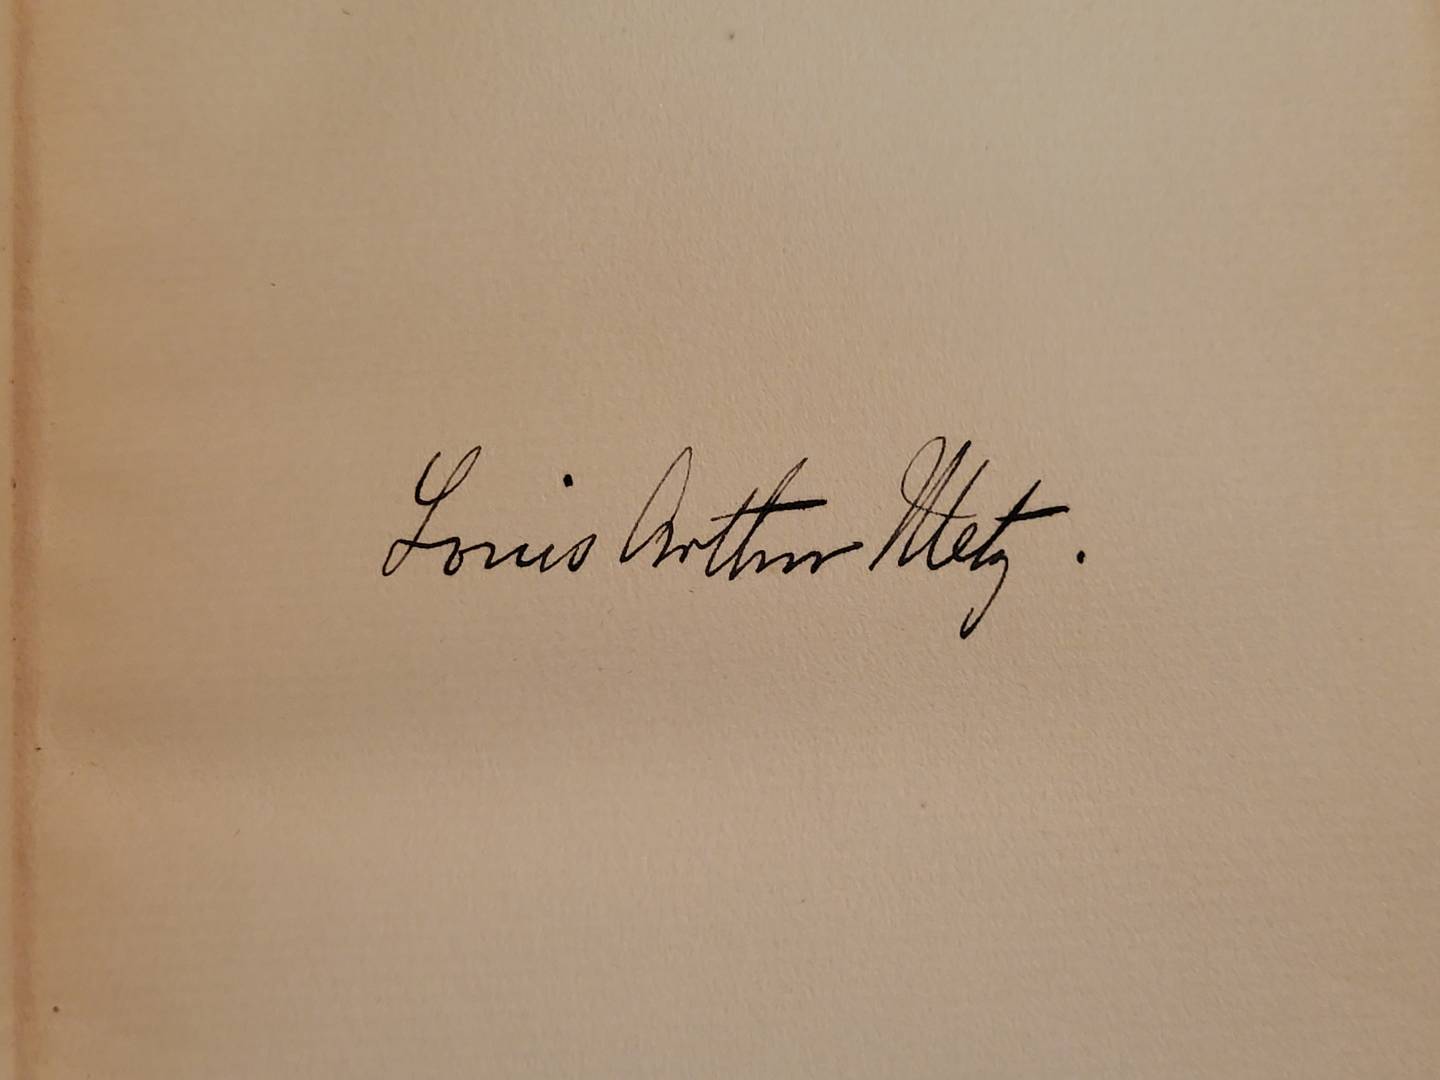 Louis Arthur Metz.